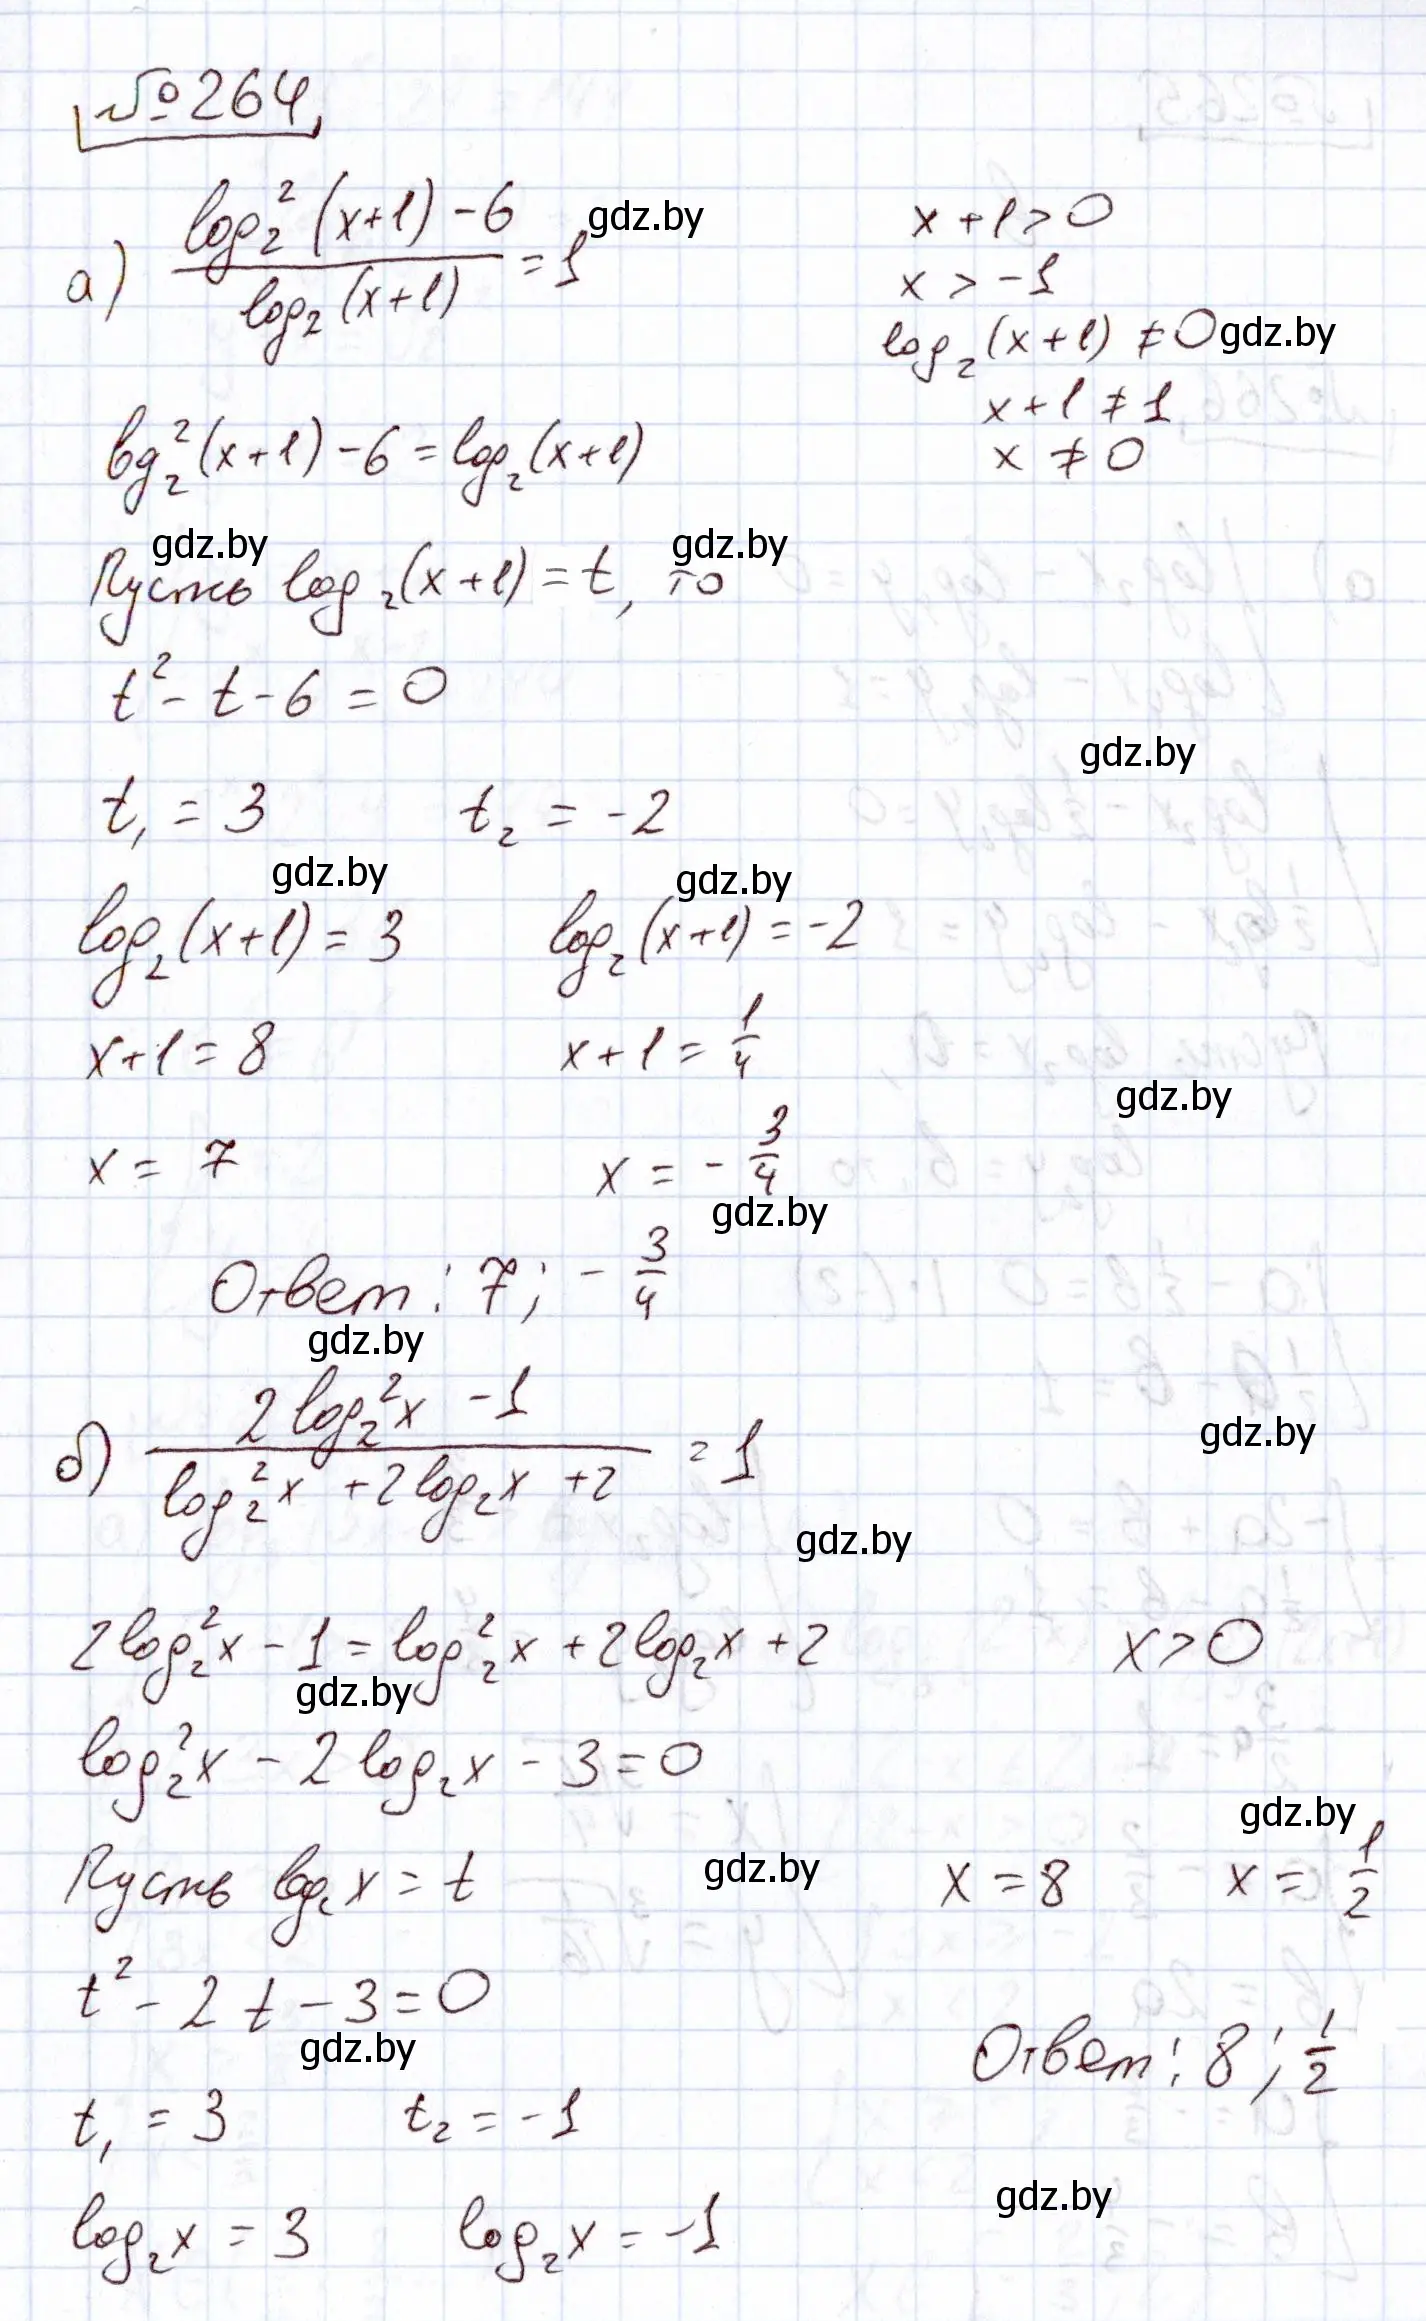 №264
а) (log₂²(x+1) - 6) / (log₂(x+1)) = 1 gdz.by
x+1>0
x > -1
log₂(x+1) ≠ 0 gdz.by
x+1 ≠ 1
x ≠ 0
log₂²(x+1) - 6 = log₂(x+1)
gdz.by gdz.by
Пусть log₂(x+1) = t, то
t² - t - 6 = 0
gdz.by
t₁ = 3 t₂ = -2
gdz.by gdz.by
log₂(x+1) = 3 log₂(x+1) = -2
x+1 = 8 x+1 = 1/4
gdz.by
x = 7 x = - 3/4
gdz.by
Ответ: 7; - 3/4
gdz.by
б) (2log₂²x - 1) / (log₂²x + 2log₂x + 2) = 1
gdz.by
gdz.by
2log₂²x - 1 = log₂²x + 2log₂x + 2 x>0
gdz.by
log₂²x - 2log₂x - 3 = 0
gdz.by
Пусть log₂x = t gdz.by x = 8 x = 1/2
t² - 2t - 3 = 0
gdz.by
Ответ: 8; 1/2
t₁ = 3 t₂ = -1
gdz.by
log₂x = 3 log₂x = -1